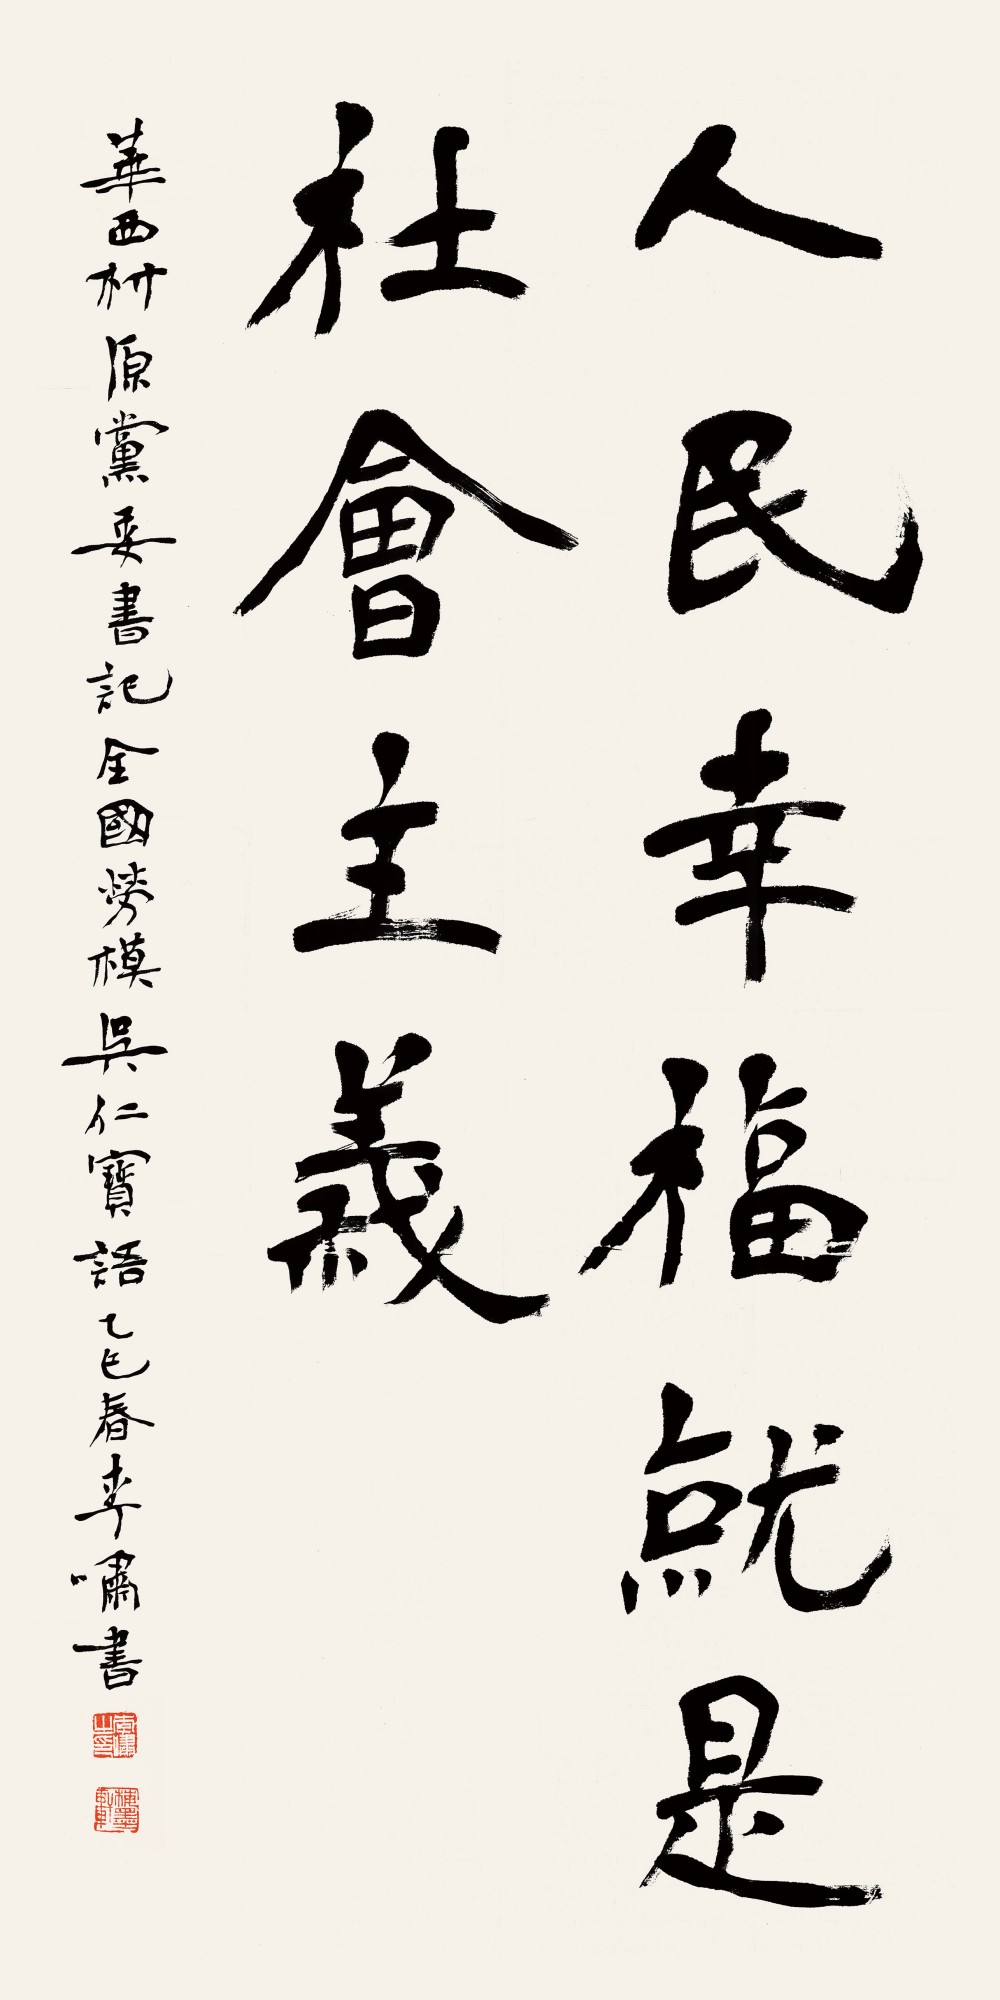 人民幸福就是
社會主義
華西村原黨委書記全國勞模吳仁寶語乙巳春李嘯書